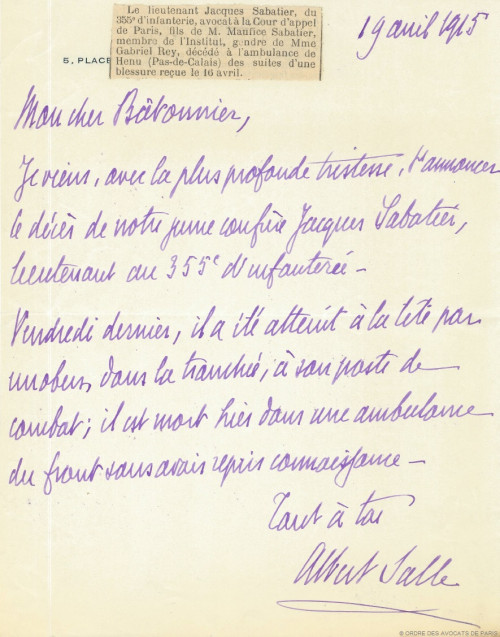 Le lieutenant Jacques Sabatier, du
355e d'infanterie, avocat à la Cour d'appel
de Paris, fils de M. Maurice Sabatier,
membre de l'Institut, gendre de Mme
Gabriel Rey, décédé à l'ambulance de
Henu (Pas-de-Calais) des suites d'une
blessure reçue le 16 avril.
19 avril 1915
5, PLACE
Mon cher Bâtonnier,
Je viens, avec la plus profonde tristesse, t'annoncer
le décès de notre jeune confrère Jacques Sabatier,
lieutenant au 355e d'infanterie –
Vendredi dernier, il a été atteint à la tête par
un obus, dans la tranchée, à son poste de
combat ; il est mort hier dans une ambulance
du front sans avoir repris connaissance –
Tout à toi
Albert Salle
© ORDRE DES AVOCATS DE PARIS